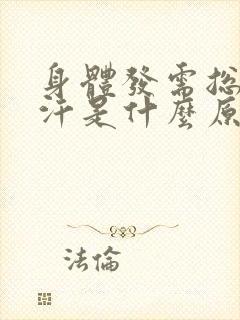 身體發需總
汗是什麼原
法倫